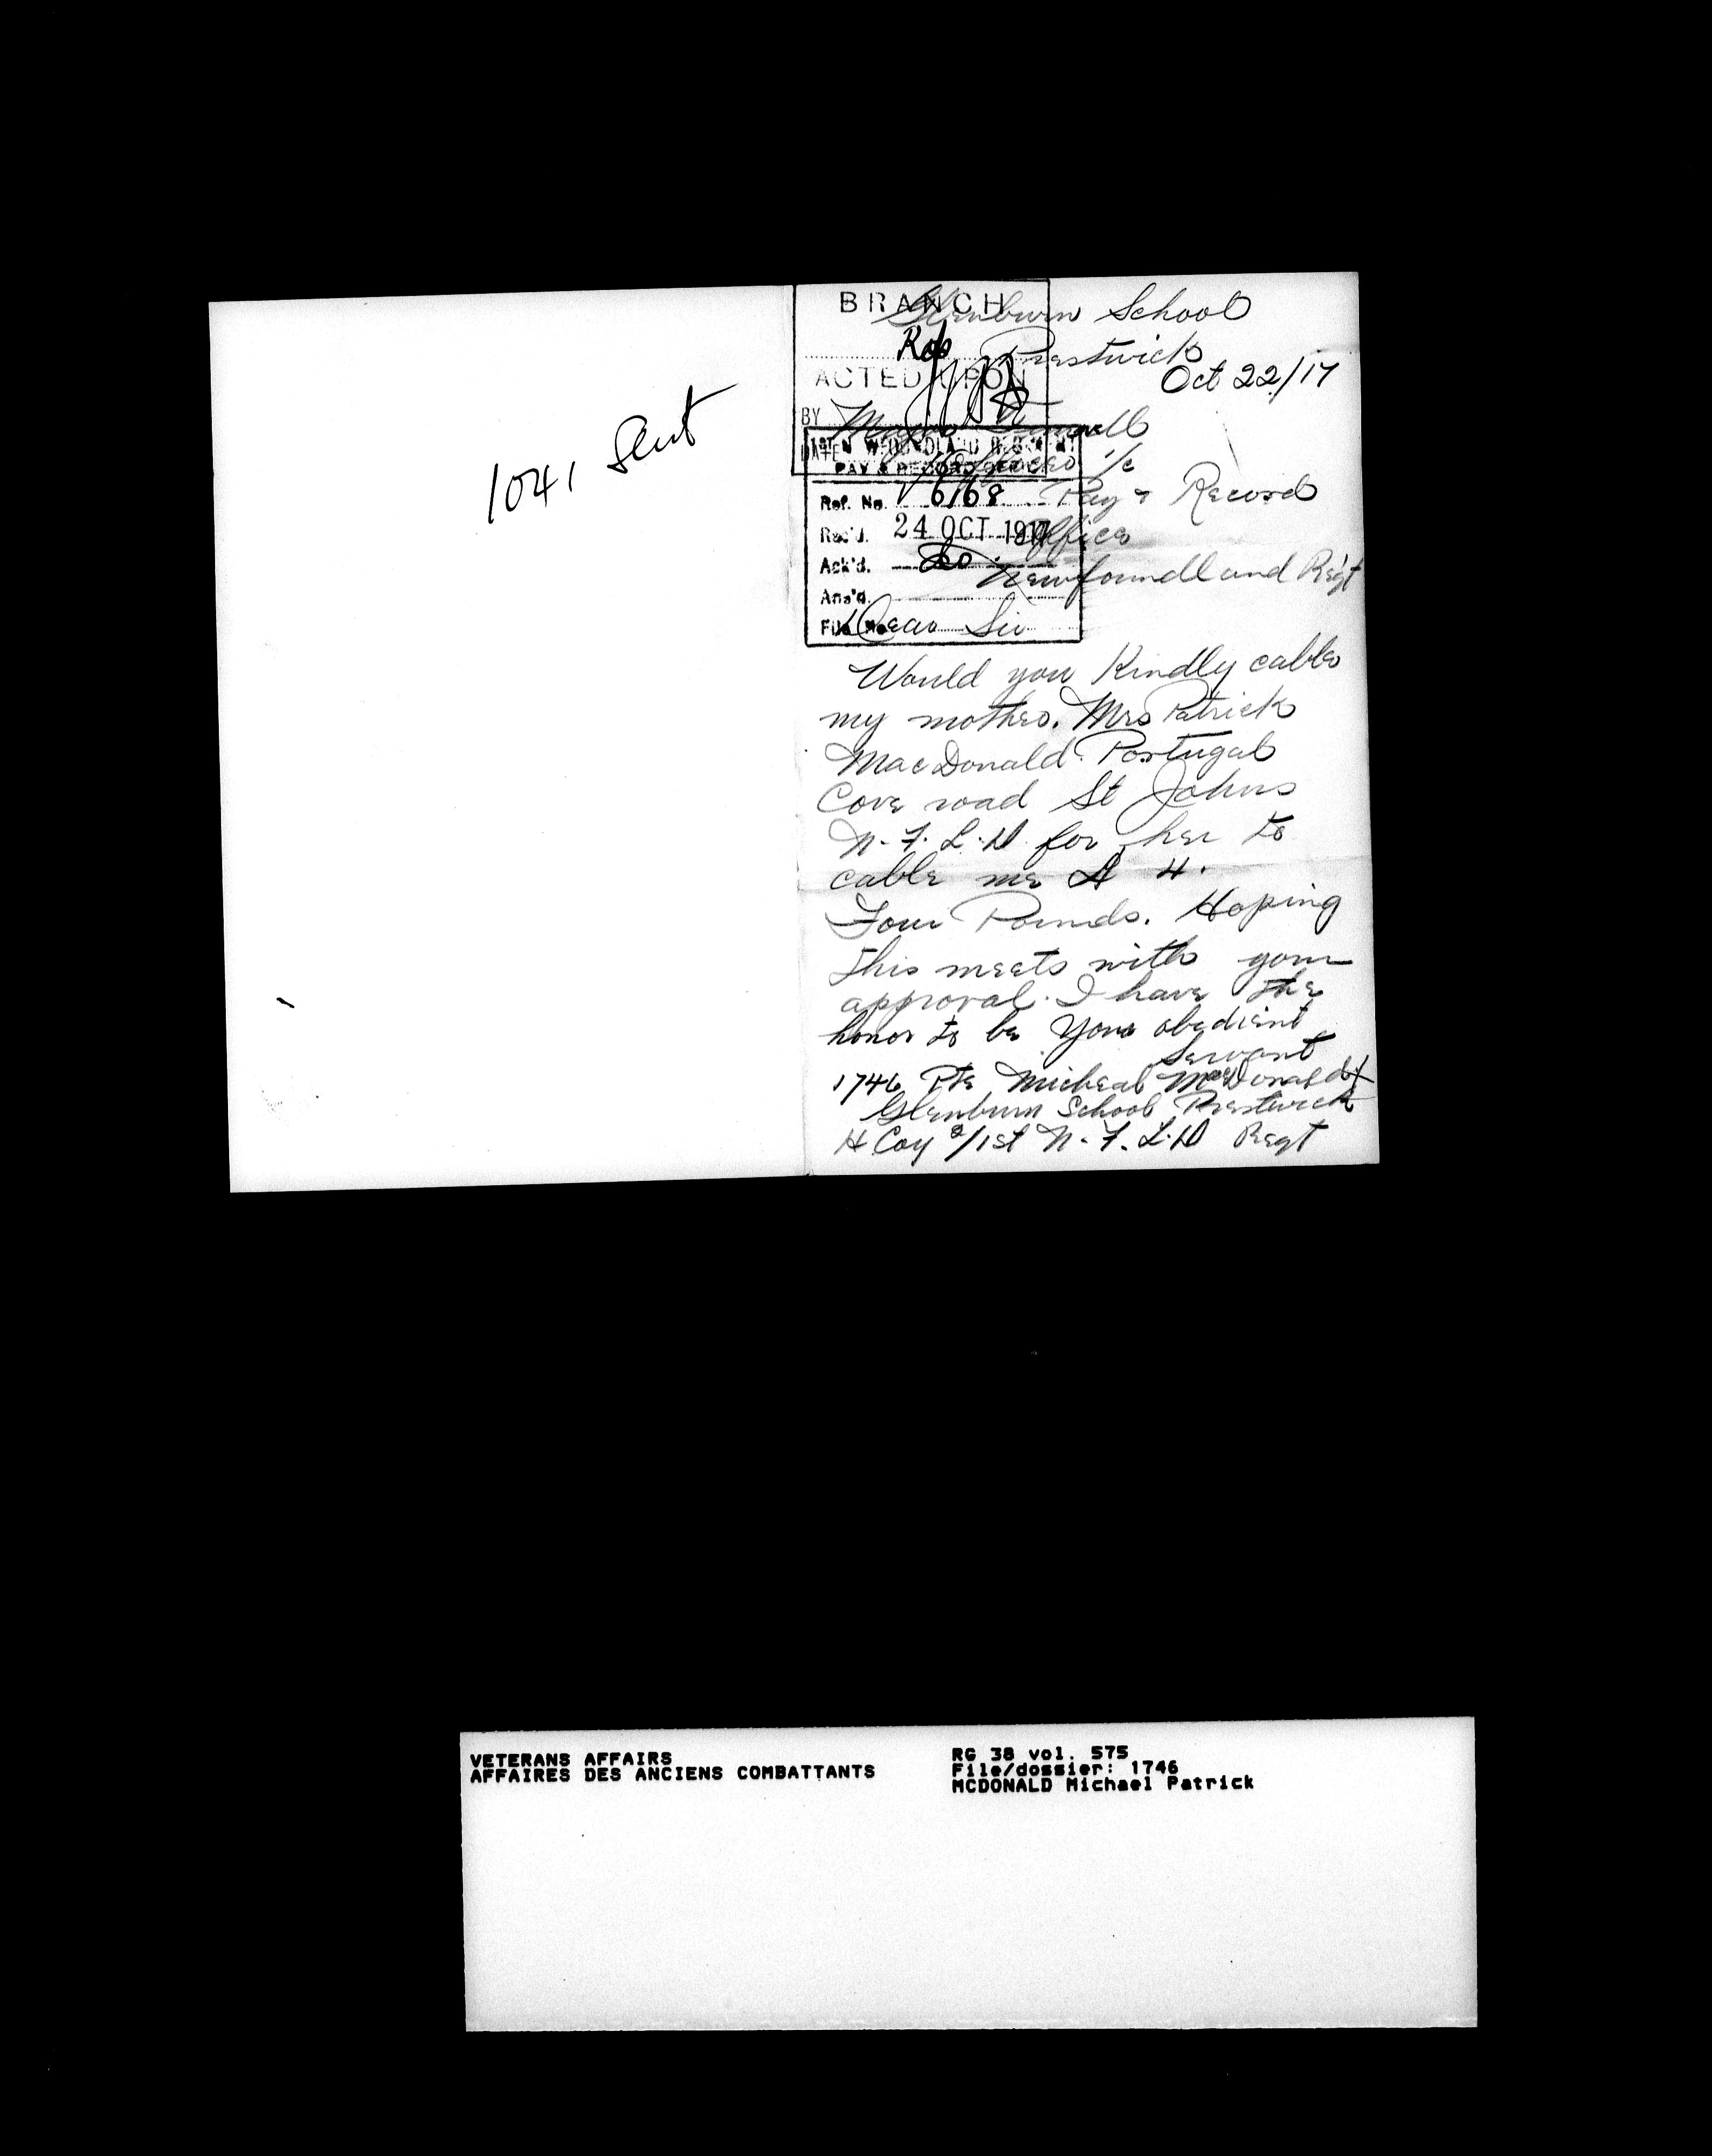 1041 Sent
BRANCH
Rds
ACTED UPON
BY
DATE
1ST NEWFOUNDLAND REGIMENT
PAY & RECORD OFFICE
Ref. No. 6168
Rec'd. 24 OCT 1917
Ack'd.
Ans'd.
File No.
Glenburn School
Prestwick
Oct 22/17
Major Timewell
Officer i/c
Pay & Record
Office
Newfoundland Reg't
Dear Sir
Would you Kindly cable
my mother. Mrs Patrick
MacDonald Portugal
Cove road St Johns
N.F.L.D for her to
cable me £ 4.
Four Pounds. Hoping
this meets with your
approval. I have the
honor to be Your obedient
Servant
1746 Pte Micheal MacDonald
Glenburn School Prestwick
H Coy 2/1st N.F.L.D Regt
VETERANS AFFAIRS
AFFAIRES DES ANCIENS COMBATTANTS
RG 38 vol. 575
File/dossier: 1746
MCDONALD Michael Patrick